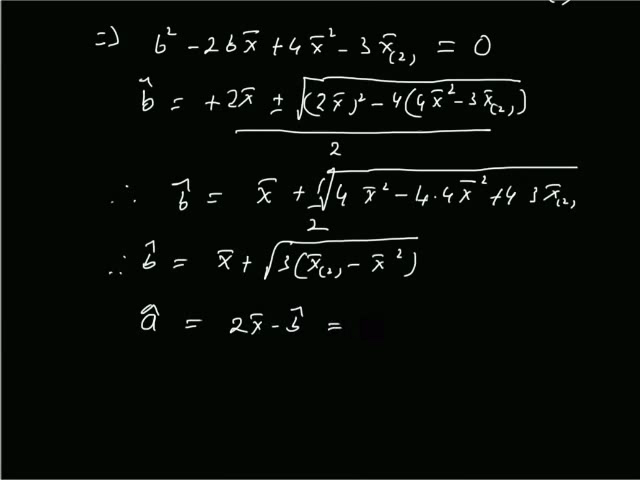 ⇒ b² − 2bx̄ + 4x̄² − 3x̄₍₂₎ = 0
b̂ = +2x̄ ± √((2x̄)² − 4(4x̄² − 3x̄₍₂₎)
2
∴ b̂ = x̄ + ½√(4 x̄² − 4·4x̄² + 4 3x̄₍₂₎
∴ b̂ = x̄ + √(3(x̄₍₂₎ − x̄²))
â = 2x̄ − b̂ =